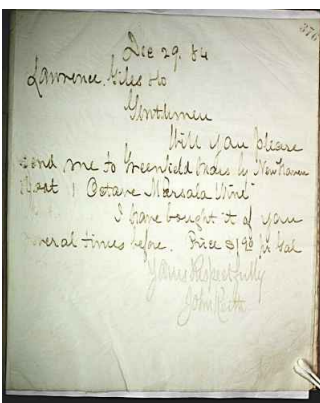 376
Dec 29. 84
Lawrence, Giles &Co
Gentlemen
Will you please
send me to Greenfield Mass by New Haven
Boat 1 Octave Marsala Wine
I have bought it of you
several times before. Price $1.90 pr Gal
Yours Respectfully
John Keith